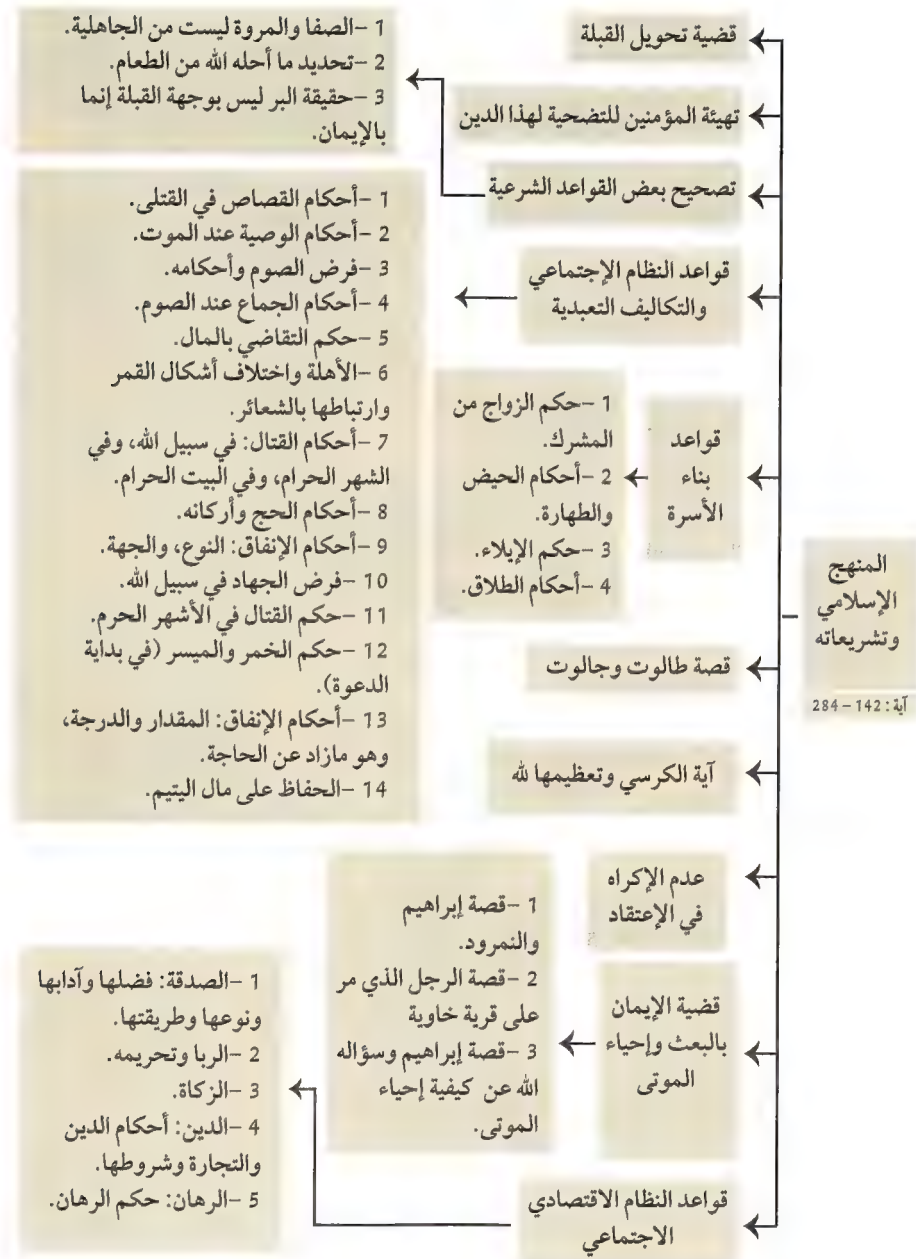 المنهج
الإسلامي
وتشريعاته
آية: 142 – 284
قضية تحويل القبلة
تهيئة المؤمنين للتضحية لهذا الدين
تصحيح بعض القواعد الشرعية
1 – الصفا والمروة ليست من الجاهلية.
2 – تحديد ما أحله الله من الطعام.
3 – حقيقة البر ليس بوجهة القبلة إنما
بالإيمان.
قواعد النظام الإجتماعي
والتكاليف التعبدية
1 – أحكام القصاص في القتلى.
2 – أحكام الوصية عند الموت.
3 – فرض الصوم وأحكامه.
4 – أحكام الجماع عند الصوم.
5 – حكم التقاضي بالمال.
6 – الأهلة واختلاف أشكال القمر
وارتباطها بالشعائر.
7 – أحكام القتال: في سبيل الله، وفي
الشهر الحرام، وفي البيت الحرام.
8 – أحكام الحج وأركانه.
9 – أحكام الإنفاق: النوع، والجهة.
10 – فرض الجهاد في سبيل الله.
11 – حكم القتال في الأشهر الحرم.
12 – حكم الخمر والميسر (في بداية
الدعوة).
13 – أحكام الإنفاق: المقدار والدرجة،
وهو مازاد عن الحاجة.
14 – الحفاظ على مال اليتيم.
قواعد
بناء
الأسرة
1 – حكم الزواج من
المشرك.
2 – أحكام الحيض
والطهارة.
3 – حكم الإيلاء.
4 – أحكام الطلاق.
قصة طالوت وجالوت
آية الكرسي وتعظيمها لله
عدم الإكراه
في الإعتقاد
قضية الإيمان
بالبعث وإحياء
الموتى
1 – قصة إبراهيم
والنمرود.
2 – قصة الرجل الذي مر
على قرية خاوية
3 – قصة إبراهيم وسؤاله
الله عن كيفية إحياء
الموتى.
قواعد النظام الاقتصادي
الاجتماعي
1 – الصدقة: فضلها وآدابها
ونوعها وطريقتها.
2 – الربا وتحريمه.
3 – الزكاة.
4 – الدين: أحكام الدين
والتجارة وشروطها.
5 – الرهان: حكم الرهان.